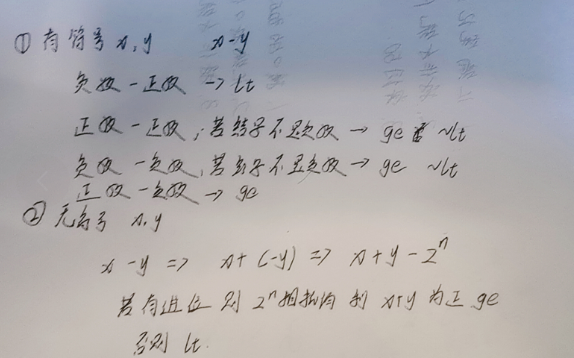 ① 有符号 x,y x-y
负数 - 正数 → lt
正数 - 正数,若结果不是负数 → ge ~lt
负数 - 负数,若结果不是负数 → ge ~lt
正数 - 负数 → ge
② 无符号 x,y
x-y => x+(-y) => x+y-2ⁿ
若有进位 则 2ⁿ相抵消 则 x+y 为正 ge
否则 lt.